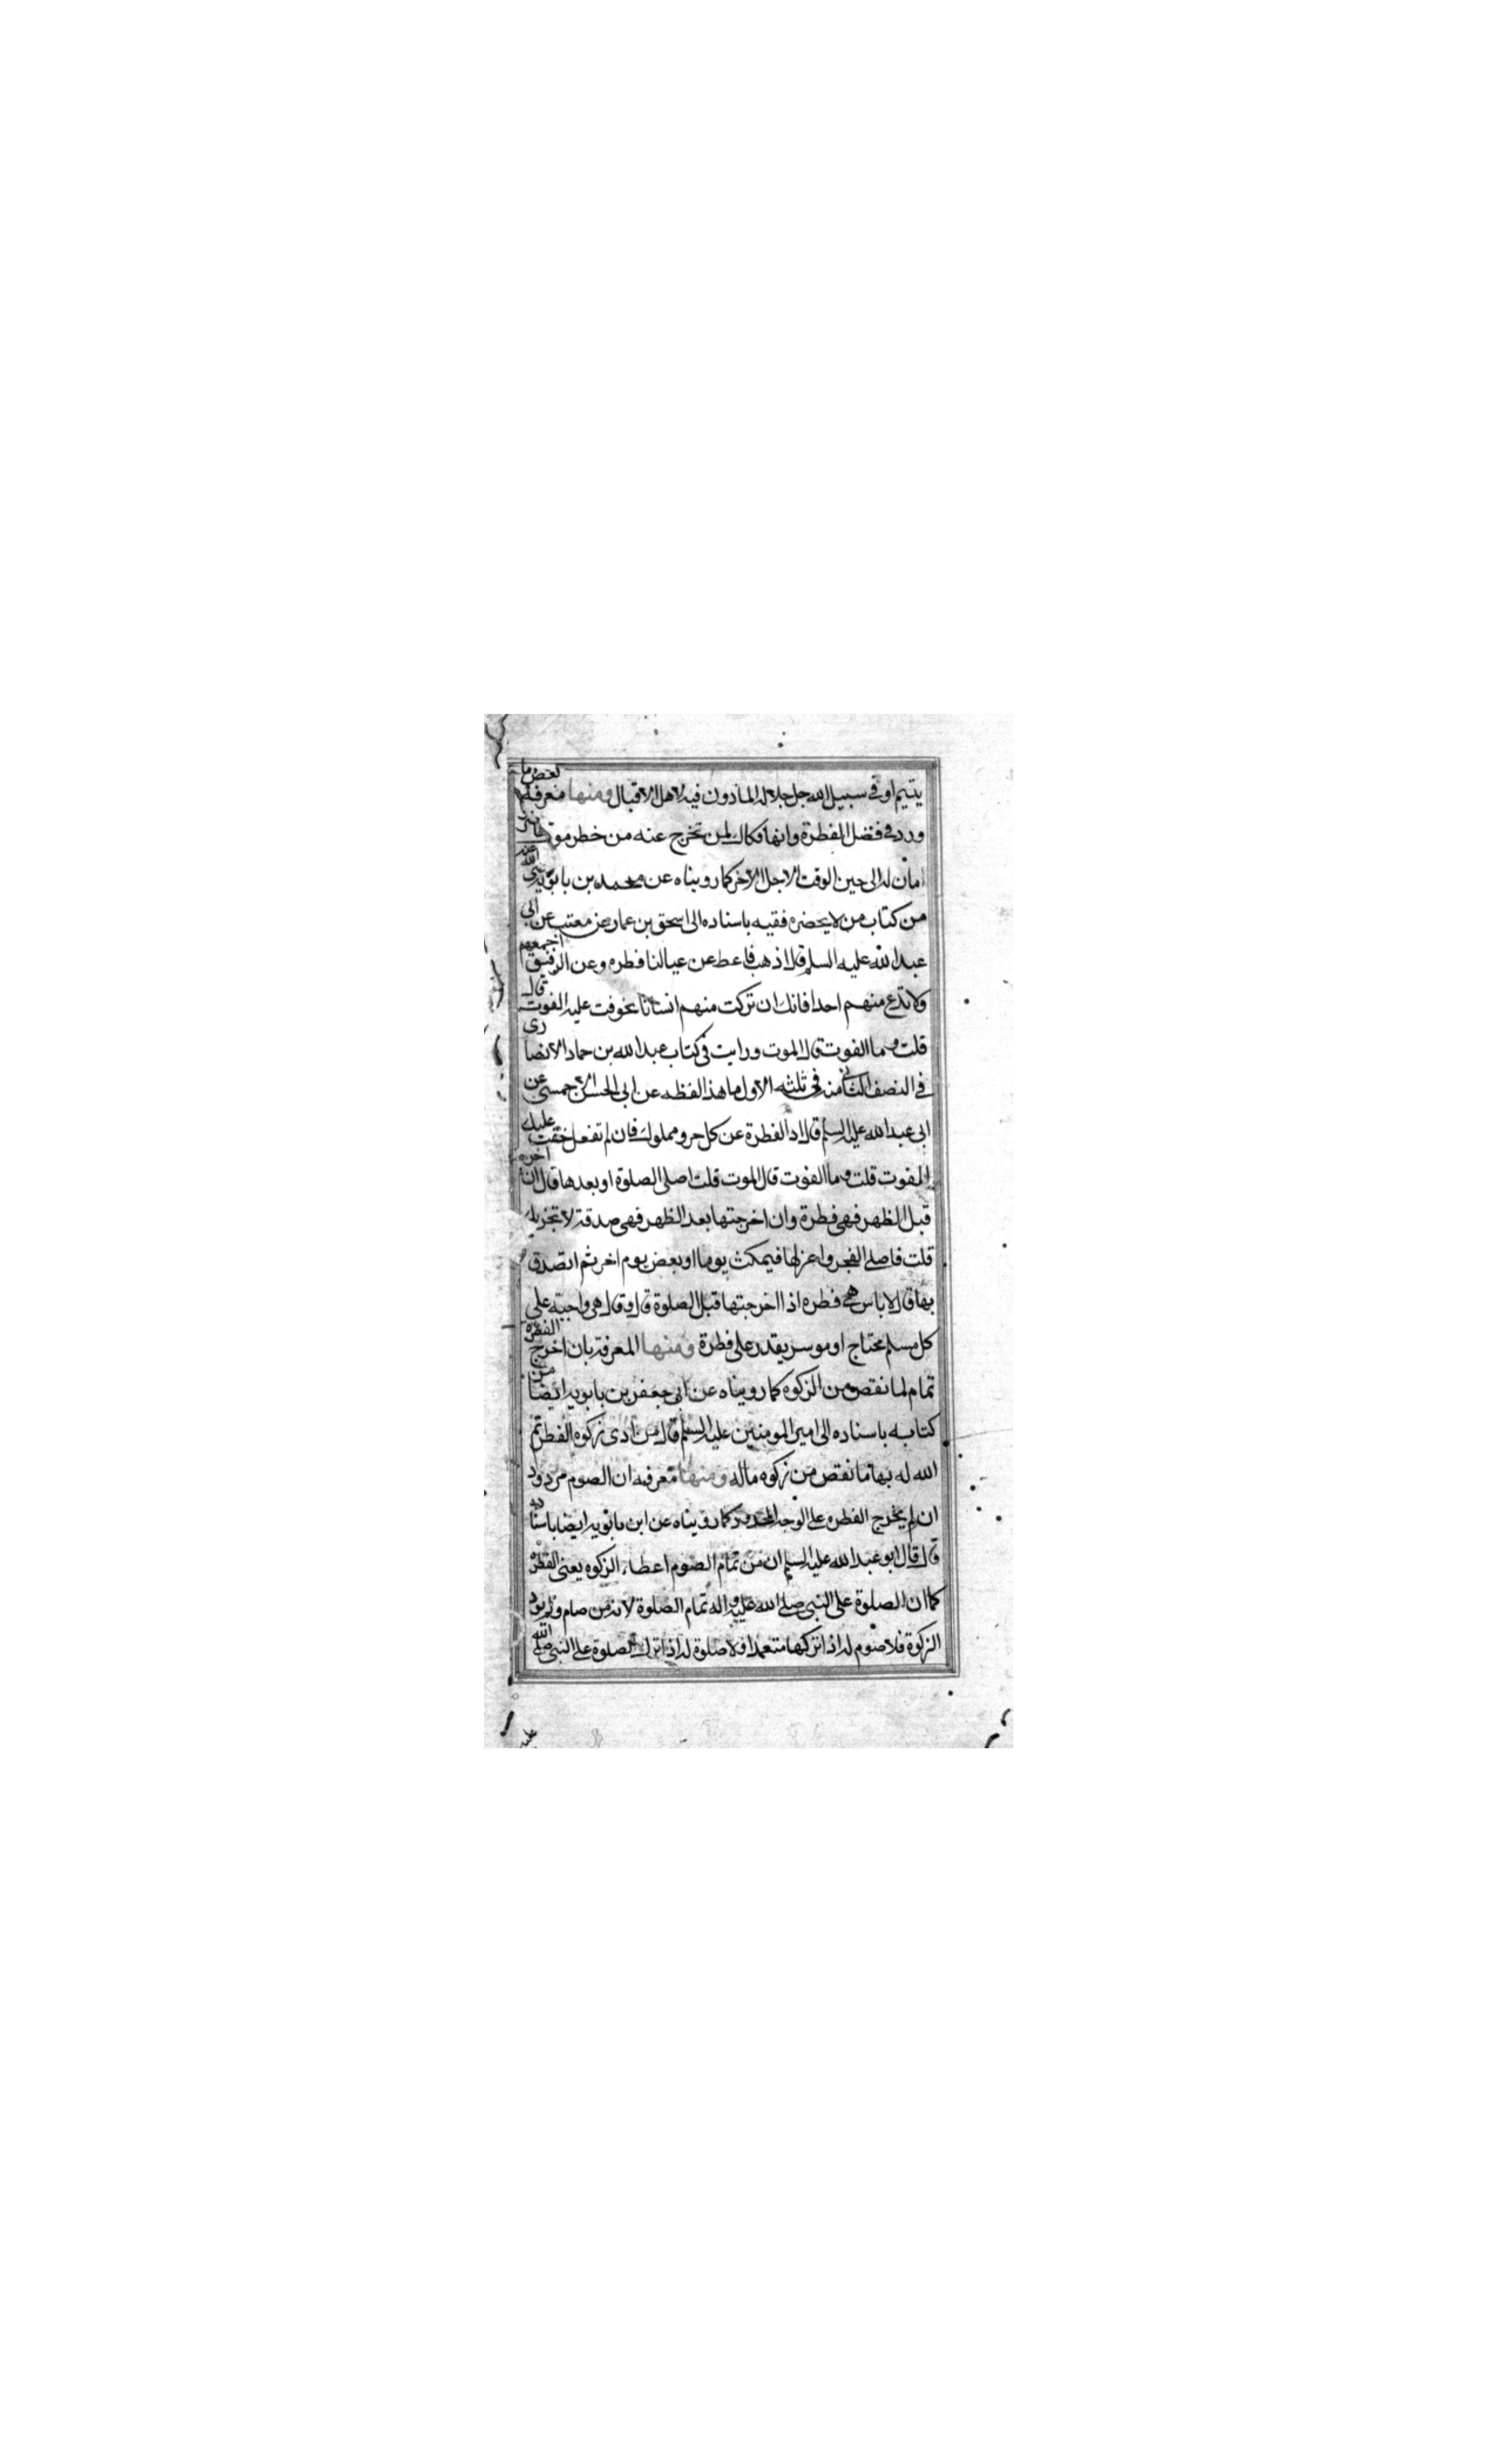 يتيم او فى سبيل الله جل جلاله الماذون فيه لاهل الاقبال ومنها معرفة بعض ما
ورد فى فضل الفطرة وانها فكاك لمن تخرج عنه من خطر موته
امان له الى حين الوقت الاجل الاخر كما رويناه عن محمد بن بابويه رضى الله عنه
من كتاب من لا يحضره فقيه باسناده الى اسحق بن عمار عن معتب عن ابى
عبد الله عليه السلم قال اذهب فاعط عن عيالنا فطره وعن الرقيق اجمعهم
ولا تدع منهم احدا فانك ان تركت منهم انسانا تخوفت عليه الفوت قال
قلت وما الفوت قال الموت ورايت فى كتاب عبد الله بن حماد الانصارى
فى النصف الثانى منه فى ثلثه الاول ما هذا لفظه عن ابى الحسن الاحمسى عن
ابى عبد الله عليه السلم قال اد الفطرة عن كل حر ومملوك فان لم تفعل خفت عليك
الفوت قلت وما الفوت قال الموت قلت اصلى الصلوة او بعدها قال ان اخرجتها
قبل الظهر فهى فطرة وان اخرجتها بعد الظهر فهى صدقة لا تجزيك
قلت فاصلى الفجر واعزلها فيمكث يوما او بعض يوم اخر ثم اتصدق
بها قال لا باس هى فطره اذا اخرجتها قبل الصلوة قال وقال هى واجبة على
كل مسلم محتاج او موسر يقدر على فطرة ومنها المعرفة بان اخرج الفطرة
تمام لما نقص من الزكوه كما رويناه عن ابى جعفر بن بابويه ايضا من
كتابه باسناده الى امير المومنين عليه السلم قال من ادى زكوه الفطر تمم
الله له بها ما نقص من زكوه ماله ومنها معرفه ان الصوم مردود
ان لم يخرج الفطره على الوجه المحدود كما رويناه عن ابن بابويه ايضا باسناده
قال قال ابو عبد الله عليه السلم ان من تمام الصوم اعطاء الزكوه يعنى الفطره
كما ان الصلوة على النبى صلى الله عليه واله تمام الصلوة لانه من صام ولم يود
الزكوة فلا صوم له اذا تركها متعمدا ولا صلوة له اذا ترك الصلوة على النبى صلى الله
عليه